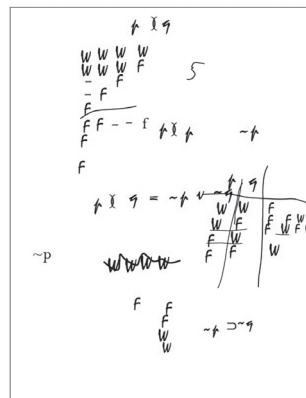 p ⟩⟨ q
W W W W
W W W W
– F
– F
F
F F – – f p ⟩⟨ p ~p
F
F
p ⟩⟨ q = ~p v ~q
p q
W W F
W F F F W
F W F W F
F F W
~p
W W W W
F F
F
W
W ~p ⊃ ~q